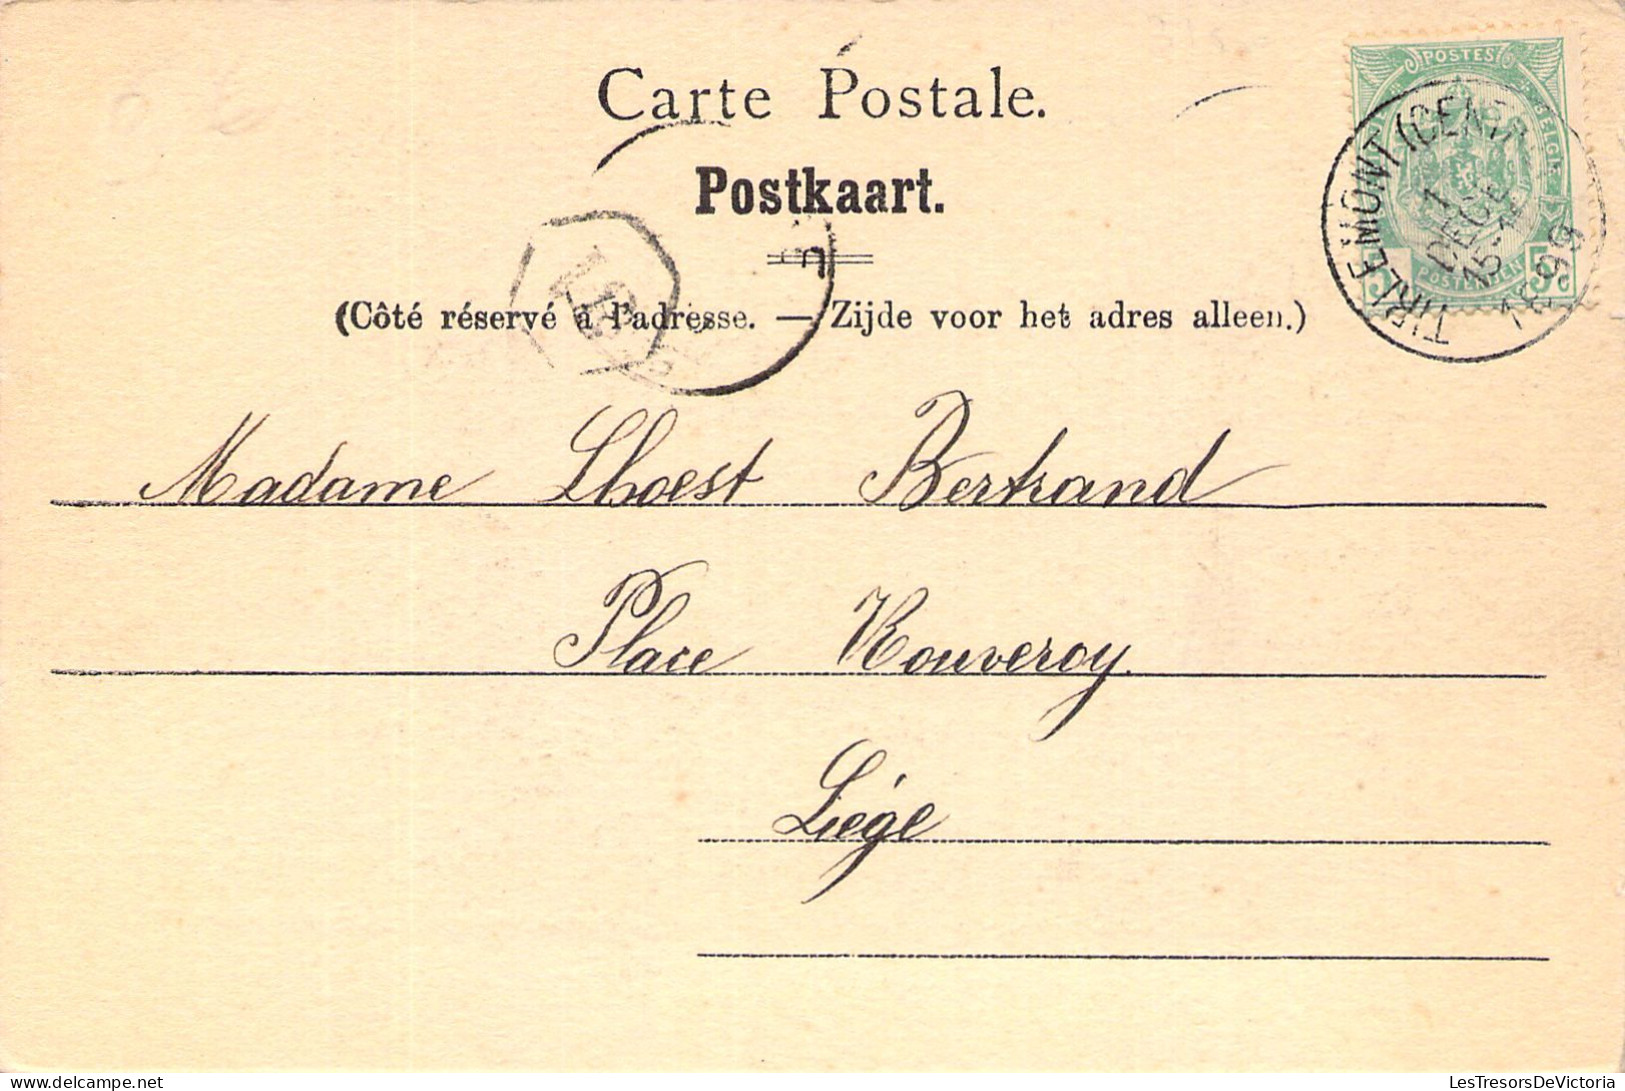 Carte Postale.
Postkaart.
(Côté réservé à l'adresse. — Zijde voor het adres alleen.)
POSTES
POSTERIJEN
5c
TIRLEMONT (CENTR
1
DECE
1899
Madame Lhoest Bertrand
Place Rouveroy.
Liége
LesTresorsDeVictoria